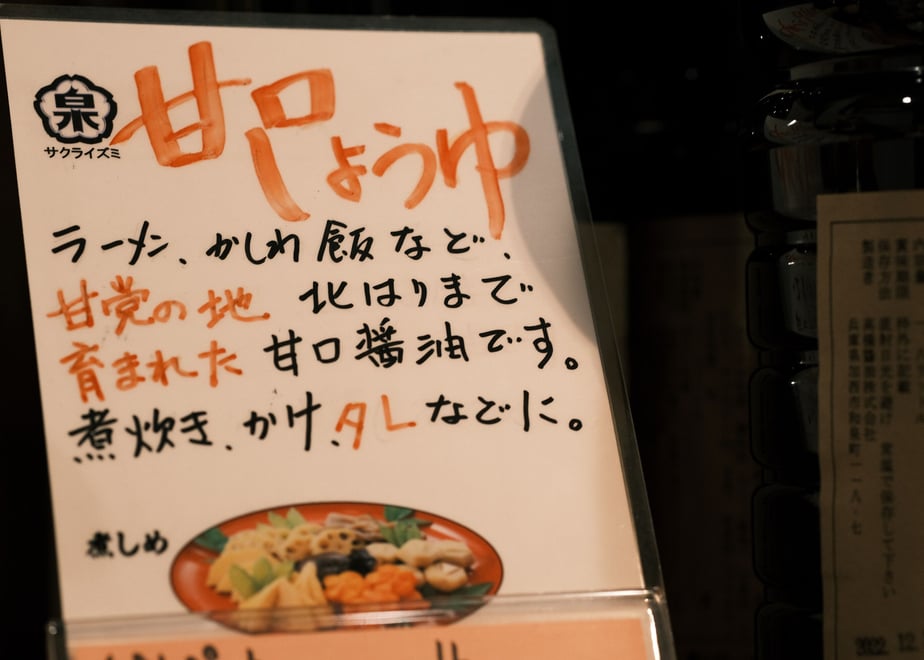 泉
サクライズミ
甘口しょうゆ
ラーメン、かしわ飯など、
甘党の地 北はりまで
育まれた 甘口醤油です。
煮炊き、かけ、タレなどに。
煮しめ
賞味期限 枠外に記載
保存方法 直射日光を避け 常温で保存して下さい
製造者 高橋醤油株式会社
兵庫県加西市和泉町一一八・七
2022. 12.